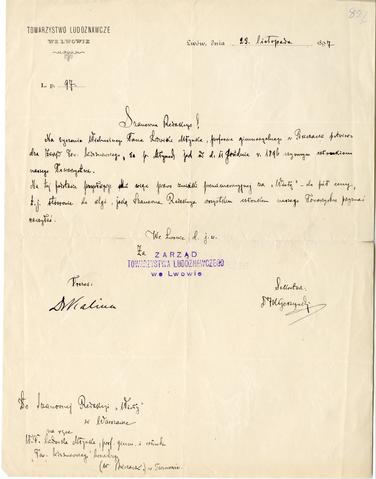 788
TOWARZYSTWO LUDOZNAWCZE
WE LWOWIE
Lwów, dnia 23. listopada 1897
L. p. 97.
Szanowna Redakcyo!
Na życzenie Wielmożnego Pana Ludwika Młynka, profesora gimnazyalnego w
dza Zarząd Tow. ludoznawczego, że p. Młynek jest od d. 11 grudnia 1896 czynnym członkiem
naszego Towarzystwa.
Na tej podstawie przysługuje Mu więc prawo zniżki prenumeracyjnej za „Wisłę" - do pół ceny,
t.j. stosownie do ulgi, jaką Szanowna Redakcya wszystkim członkom naszego Towarzystwa przyznać
raczyła.
We Lwowie d. j. w.
Za ZARZĄD
TOWARZYSTWA LUDOZNAWCZEGO
we Lwowie
Prezes:
Dr Kalina
Sekretarz
Do Szanownej Redakcyi „Wisły"
w Warszawie
na ręce
WP. Ludwika Młynka, prof. gimn. i członka
Tow. ludoznawczego
w Tarnowie.